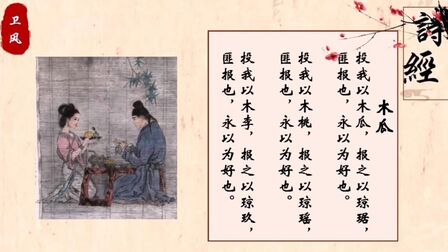 詩經
木瓜
投我以木瓜，报之以琼琚，
匪报也，永以为好也。
投我以木桃，报之以琼瑶，
匪报也，永以为好也。
投我以木李，报之以琼玖，
匪报也，永以为好也。
卫风